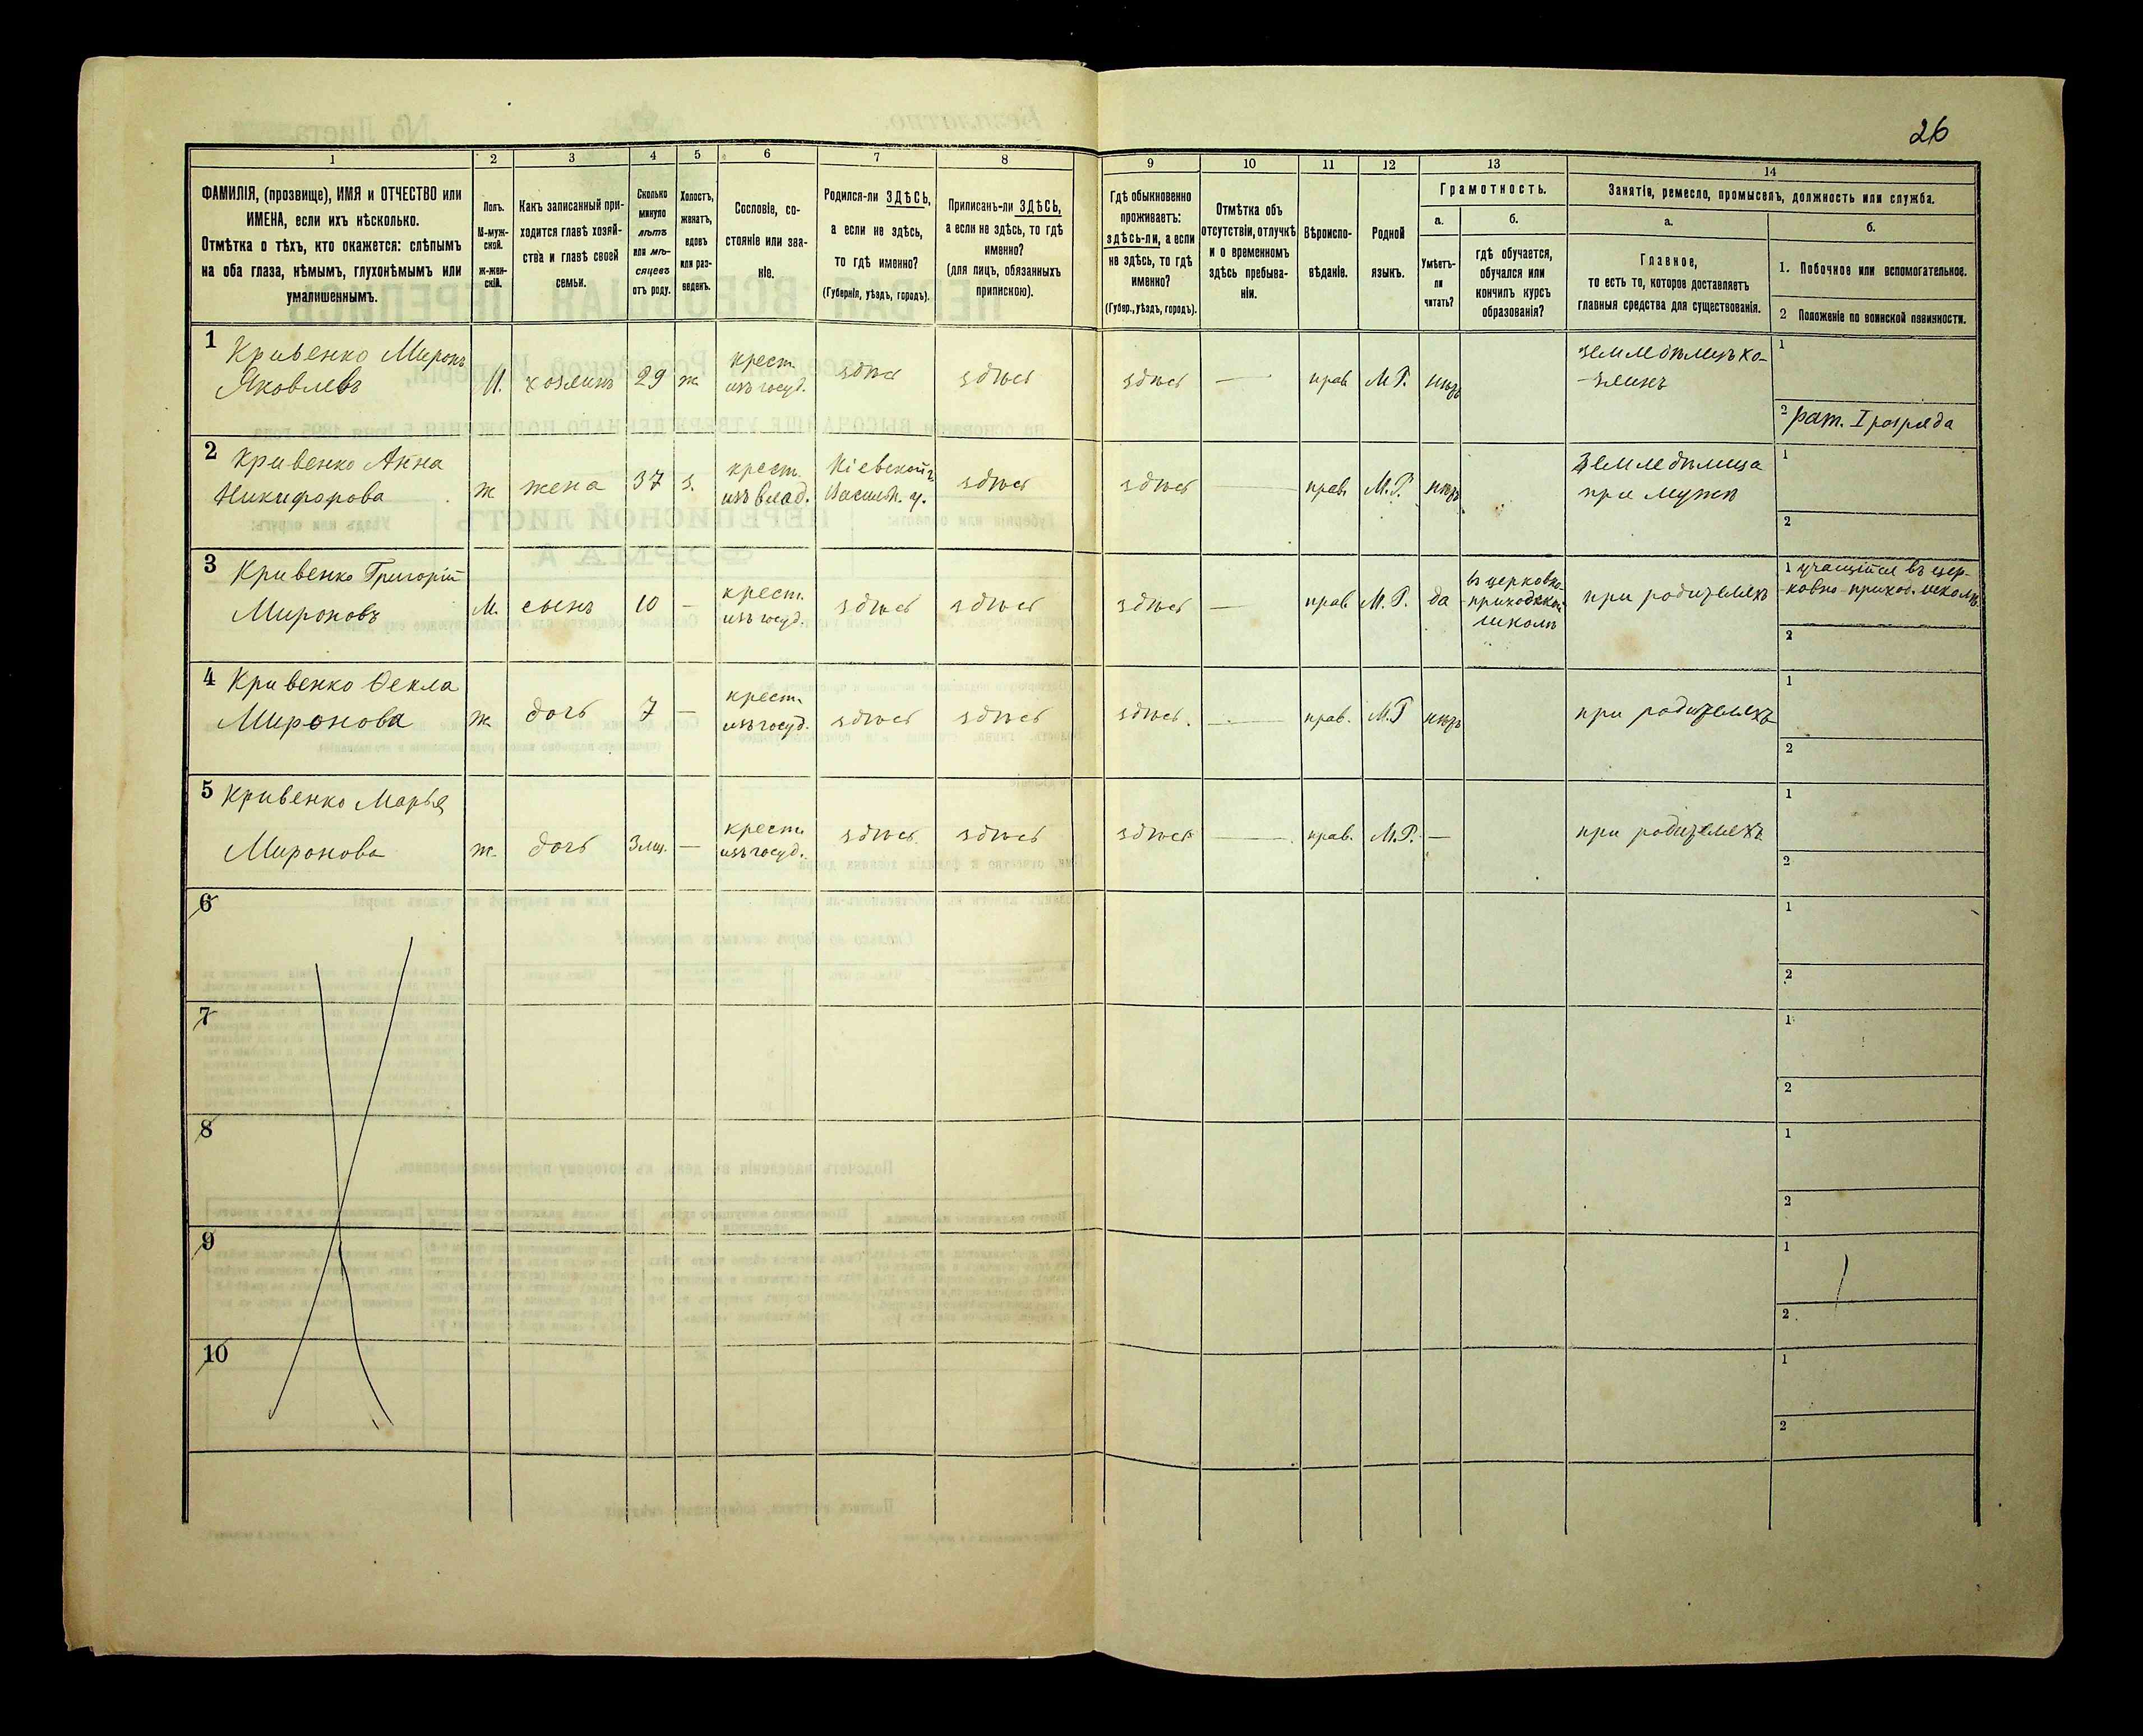 26
1
2
3
4
5
6
7
8
9
10
11
12
13
14
ФАМИЛІЯ, (прозвище), ИМЯ и ОТЧЕСТВО или
ИМЕНА, если ихъ нѣсколько.
Отмѣтка о тѣхъ, кто окажется: слѣпымъ
на оба глаза, нѣмымъ, глухонѣмымъ или
умалишеннымъ.
Полъ.
М-муж-
ской.
Ж-жен-
скій.
Какъ записанный при-
ходится главѣ хозяй-
ства и главѣ своей
семьи.
Сколько
минуло
лѣтъ
или мѣ-
сяцевъ
отъ роду.
Холостъ,
женатъ,
вдовъ
или раз-
веденъ.
Сословіе, со-
стояніе или зва-
ніе.
Родился-ли ЗДѢСЬ,
а если не здѣсь,
то гдѣ именно?
(Губернія, уѣздъ, городъ).
Приписанъ-ли ЗДѢСЬ,
а если не здѣсь, то гдѣ
именно?
(для лицъ, обязанныхъ
припискою).
Гдѣ обыкновенно
проживаетъ:
здѣсь-ли, а если
не здѣсь, то гдѣ
именно?
(Губер., уѣздъ, городъ).
Отмѣтка объ
отсутствіи, отлучкѣ
и о временномъ
здѣсь пребыва-
ніи.
Вѣроиспо-
вѣданіе.
Родной
языкъ.
Грамотность.
а.
Умѣетъ-
ли
читать?
б.
гдѣ обучается,
обучался или
кончилъ курсъ
образованія?
Занятіе, ремесло, промыселъ, должность или служба.
а.
Главное,
то есть то, которое доставляетъ
главныя средства для существованія.
б.
1. Побочное или вспомогательное.
2 Положеніе по воинской повинности.
1
Кривенко Миронъ
Яковлевъ
М.
хозяинъ
29
ж
крест.
изъ госуд.
здѣсь
здѣсь
здѣсь
—
прав
М.Р.
нѣтъ
земледѣлецъ хо-
-зяинъ
1
2 рат. I розряда
2
Кривенко Анна
Никифорова
ж
жена
37
з.
крест.
изъ влад.
Кіевской г.
Васильк. у.
здѣсь
здѣсь
—
прав.
М.Р.
нѣтъ
Земледѣлица
при мужѣ
1
2
3
Кривенко Григорій
Мироновъ
М.
сынъ
10
—
крест.
изъ госуд.
здѣсь
здѣсь
здѣсь
—
прав
М.Р.
да
въ церковно-
-приходской
школѣ
при родителяхъ
1 учащійся въ цер-
-ковно-приход. школѣ.
2
4
Кривенко Ѳекла
Миронова
ж
дочь
7
—
крест.
изъ госуд.
здѣсь
здѣсь
здѣсь.
—
прав.
М.Р
нѣтъ
при родителяхъ
1
2
5
Кривенко Марья
Миронова
ж.
дочь
3 мц.
—
крест.
изъ госуд.
здѣсь
здѣсь
здѣсь
—
прав.
М.Р.
—
при родителяхъ
1
2
6
1
2
7
1
2
8
1
2
9
1
2
10
1
2